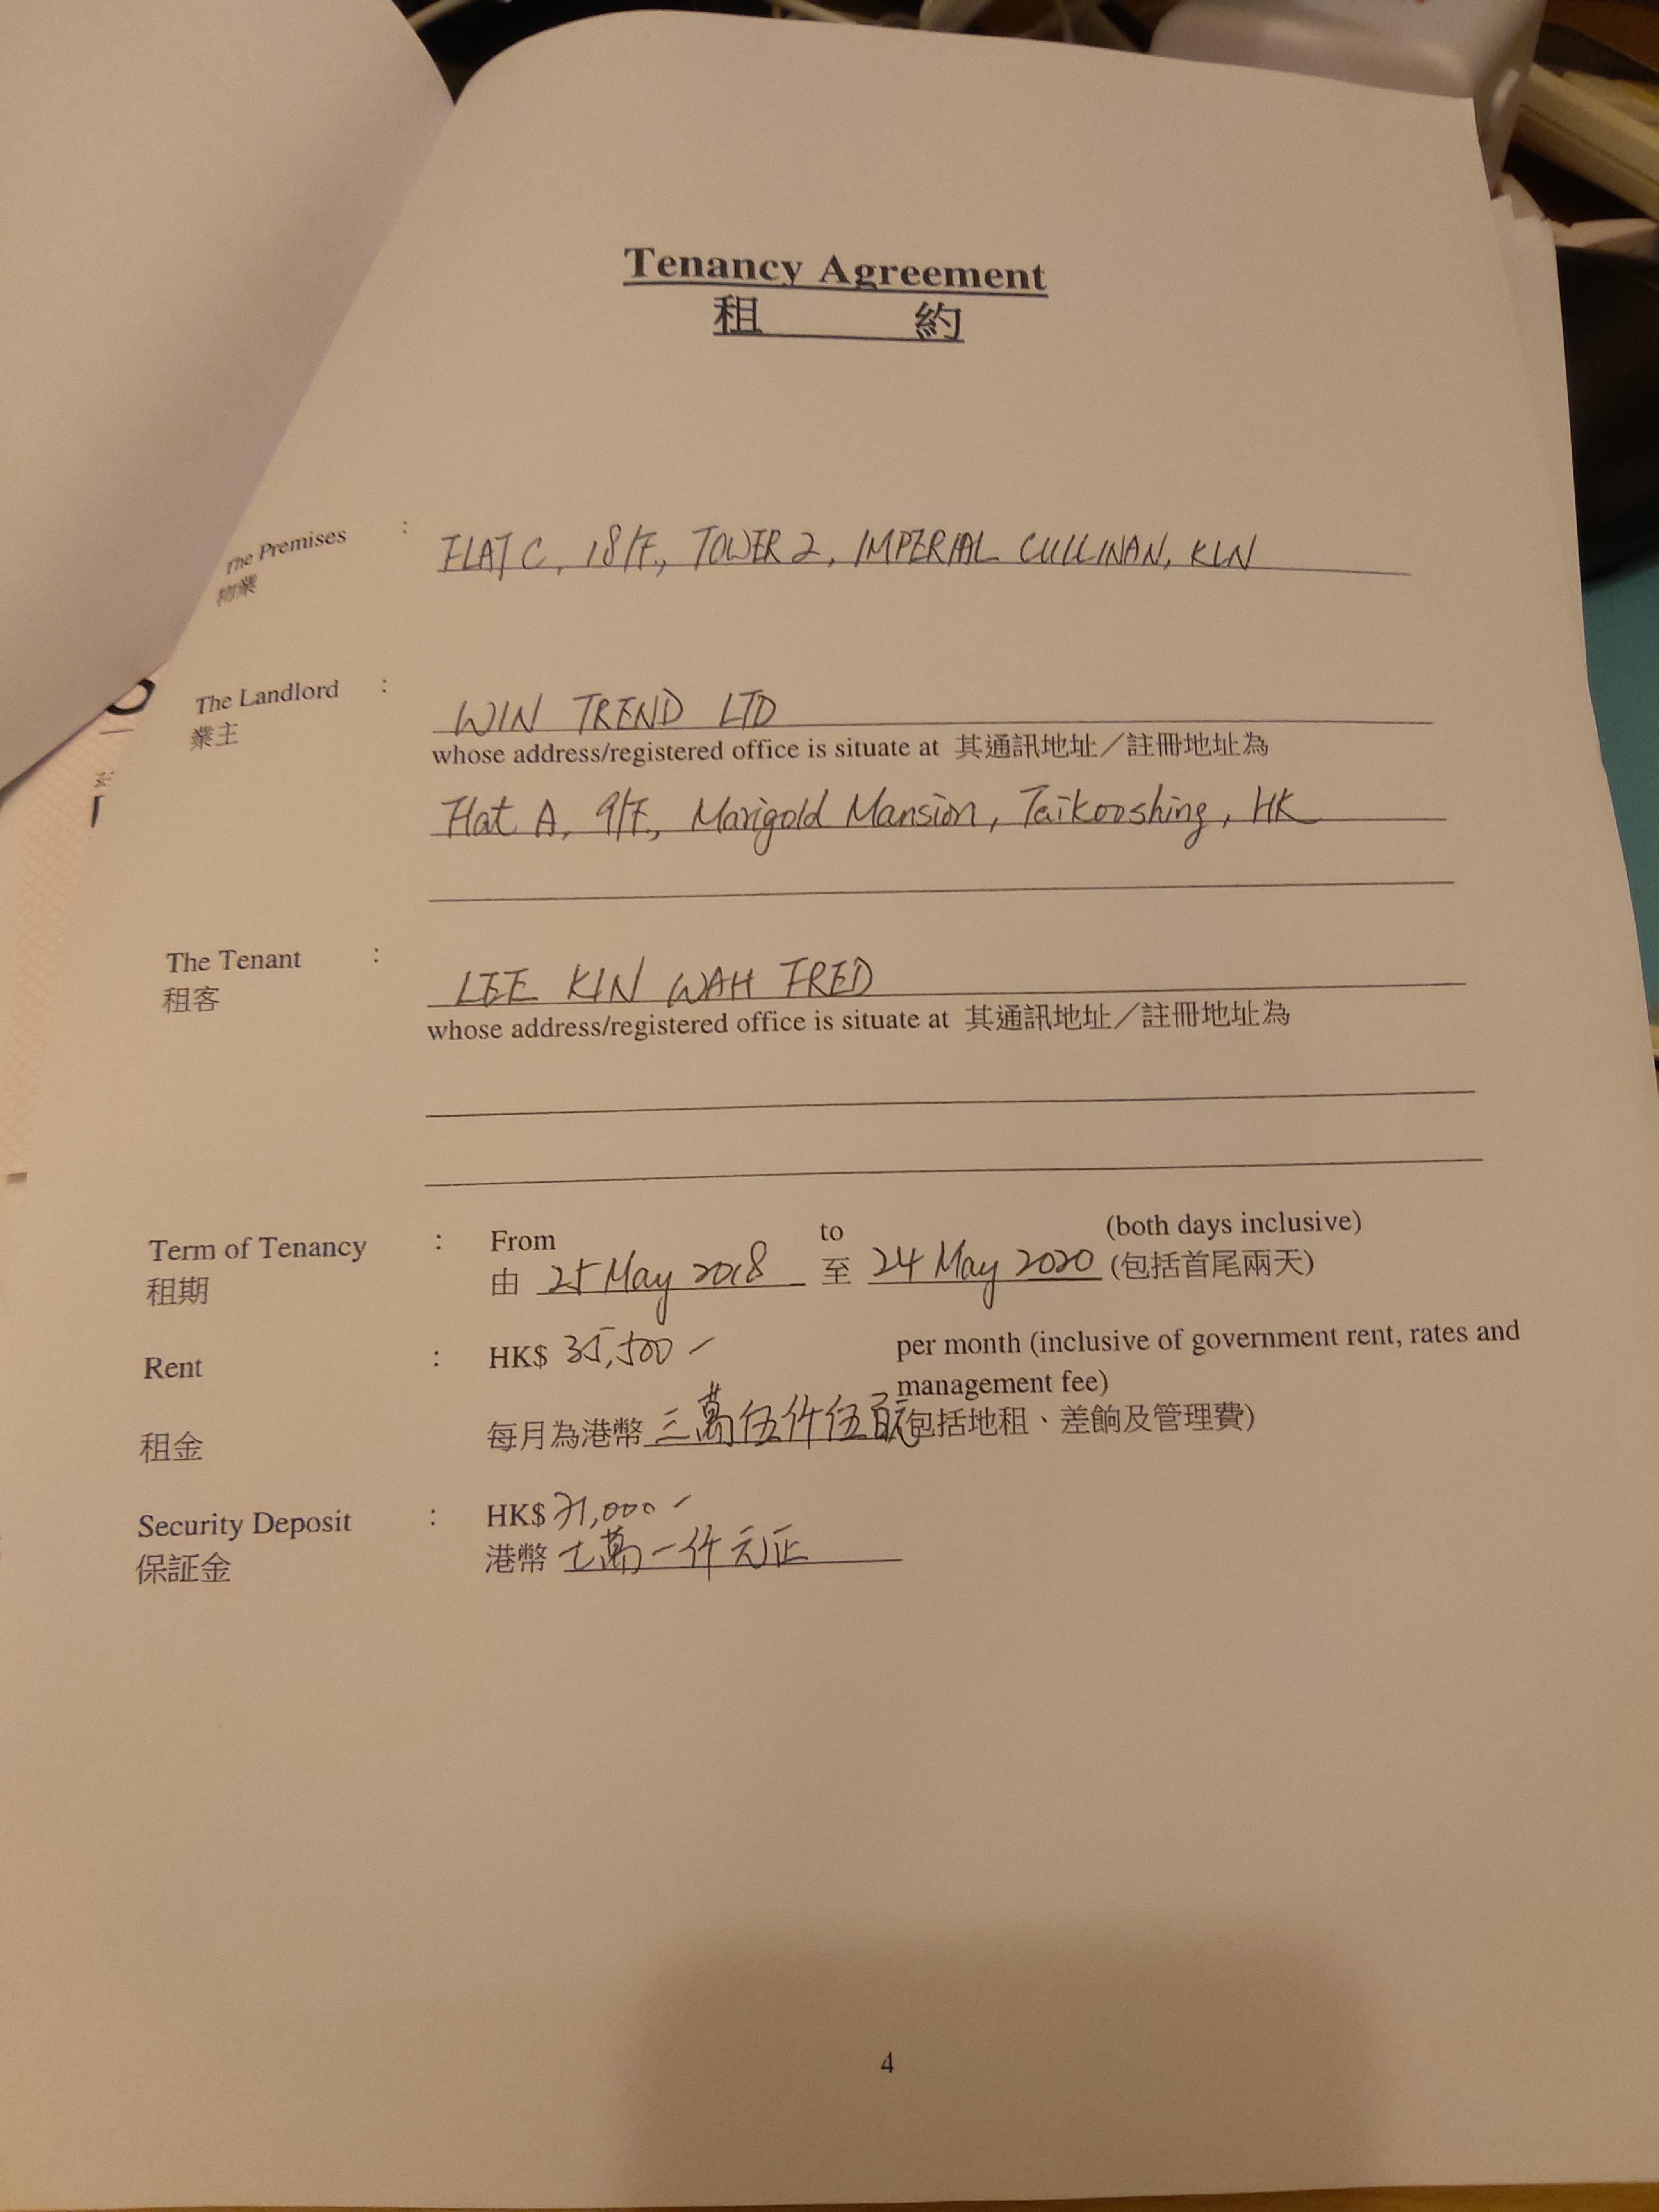 Tenancy Agreement
租 約
The Premises : FLAT C, 18/F., TOWER 2, IMPERIAL CULLINAN, KLN
物業
The Landlord : WIN TREND LTD
業主 whose address/registered office is situate at 其通訊地址／註冊地址為
Flat A, 9/F., Marigold Mansion, Taikooshing, HK
The Tenant : LEE KIN WAH FRED
租客 whose address/registered office is situate at 其通訊地址／註冊地址為
Term of Tenancy : From to (both days inclusive)
租期 由 25 May 2018 至 24 May 2020 (包括首尾兩天)
Rent : HK$ 35,500 - per month (inclusive of government rent, rates and
management fee)
租金 每月為港幣 三萬伍仟伍百元 包括地租、差餉及管理費)
Security Deposit : HK$ 71,000 -
保証金 港幣 七萬一仟元正
4